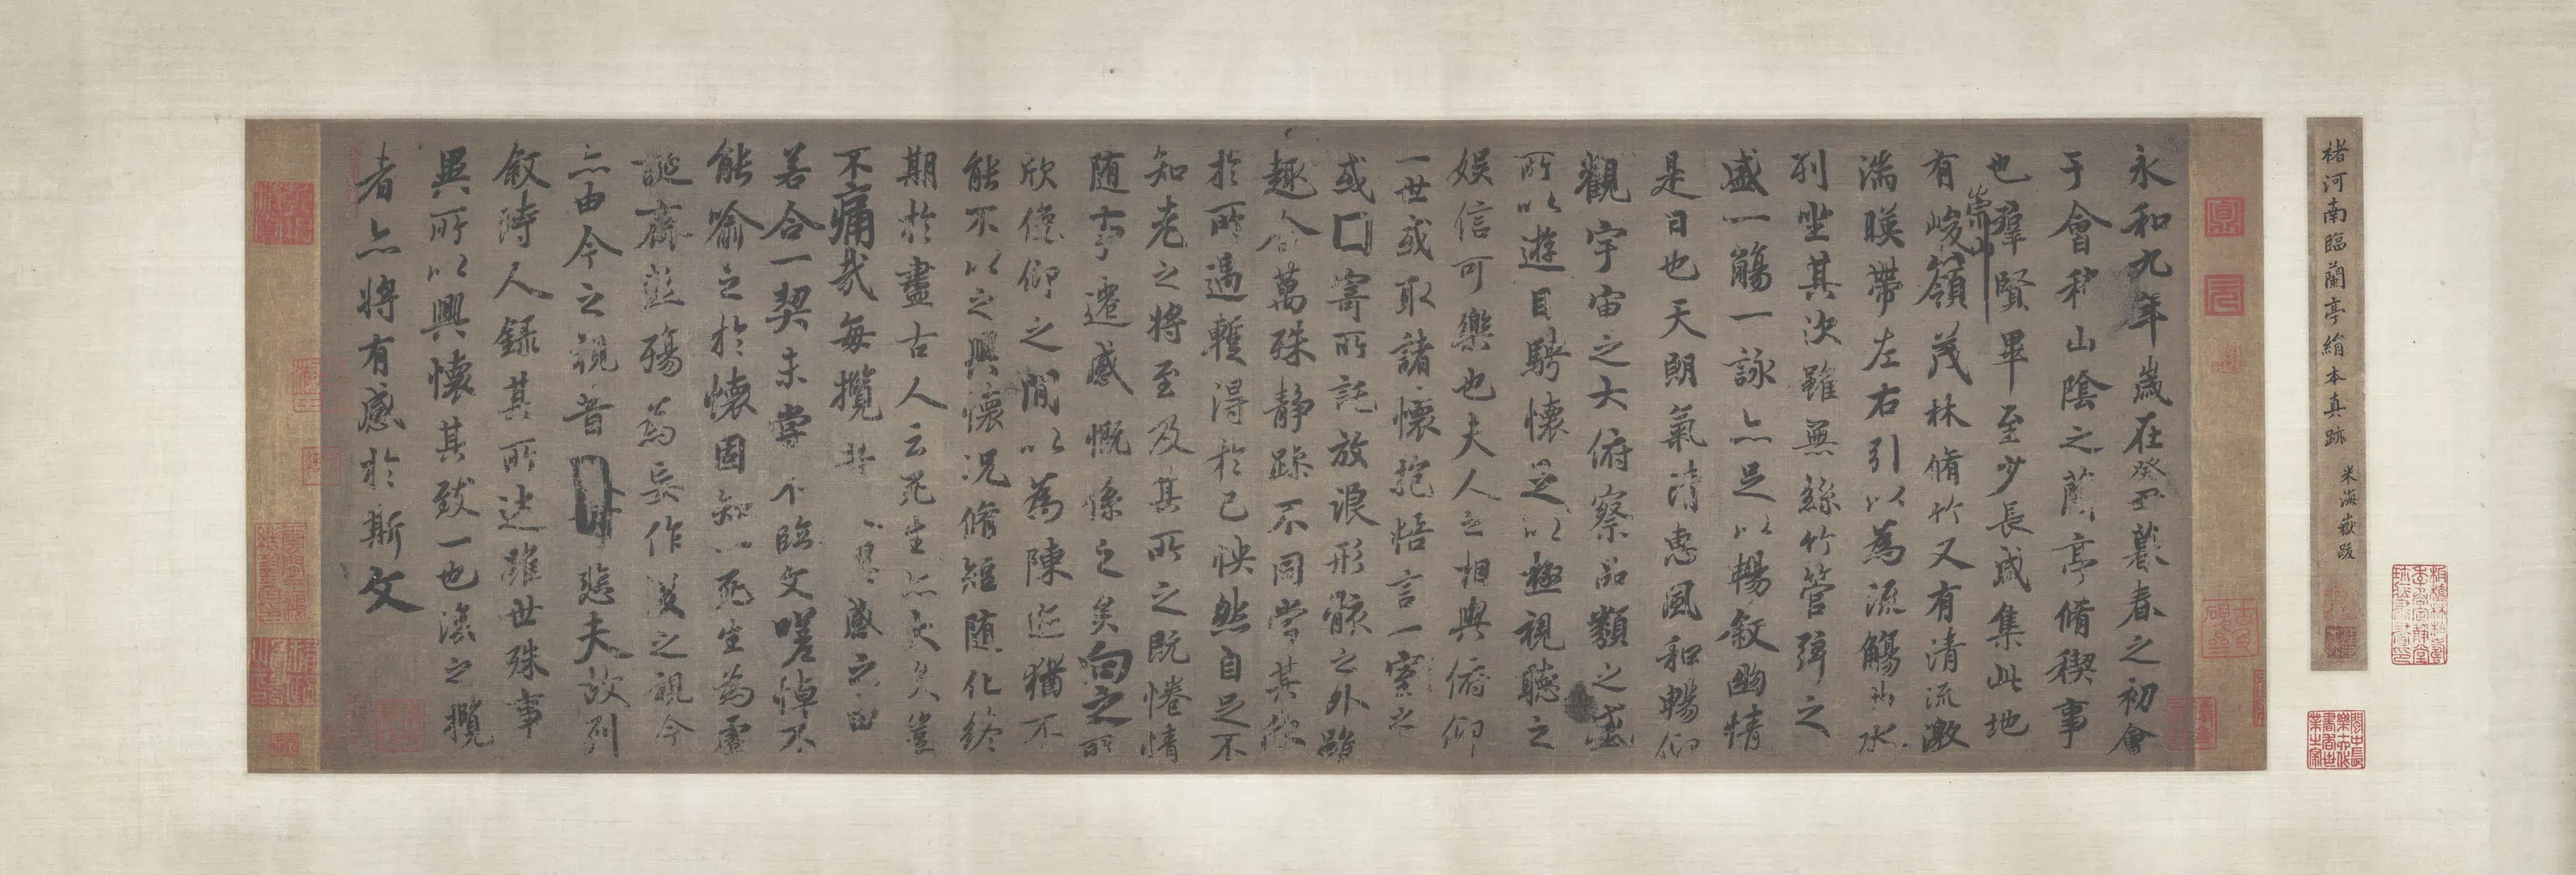 褚河南臨蘭亭絹本真跡
米海嶽跋
永和九年歲在癸丑暮春之初會
于會稽山陰之蘭亭脩稧事
也羣賢畢至少長咸集此地
有崇山峻嶺茂林脩竹又有清流激
湍暎帶左右引以為流觴曲水
列坐其次雖無絲竹管弦之
盛一觴一詠亦足以暢敘幽情
是日也天朗氣清惠風和暢仰
觀宇宙之大俯察品類之盛
所以遊目騁懷足以極視聽之
娛信可樂也夫人之相與俯仰
一世或取諸懷抱悟言一室之
或寄所託放浪形骸之外雖
趣舍萬殊靜躁不同當其欣
於所遇蹔得於己怏然自足不
知老之將至及其所之既惓情
隨事遷感慨係之矣向之所
欣俛仰之閒以為陳迹猶不
能不以之興懷況脩短隨化終
期於盡古人云死生亦大矣豈
不痛哉每攬昔感之由
若合一契未嘗不臨文嗟悼不
能喻之於懷固知一死生為虛
誕齊彭殤為妄作後之視今
亦由今之視昔悲夫故列
敘時人錄其所述雖世殊事
異所以興懷其致一也後之攬
者亦將有感於斯文